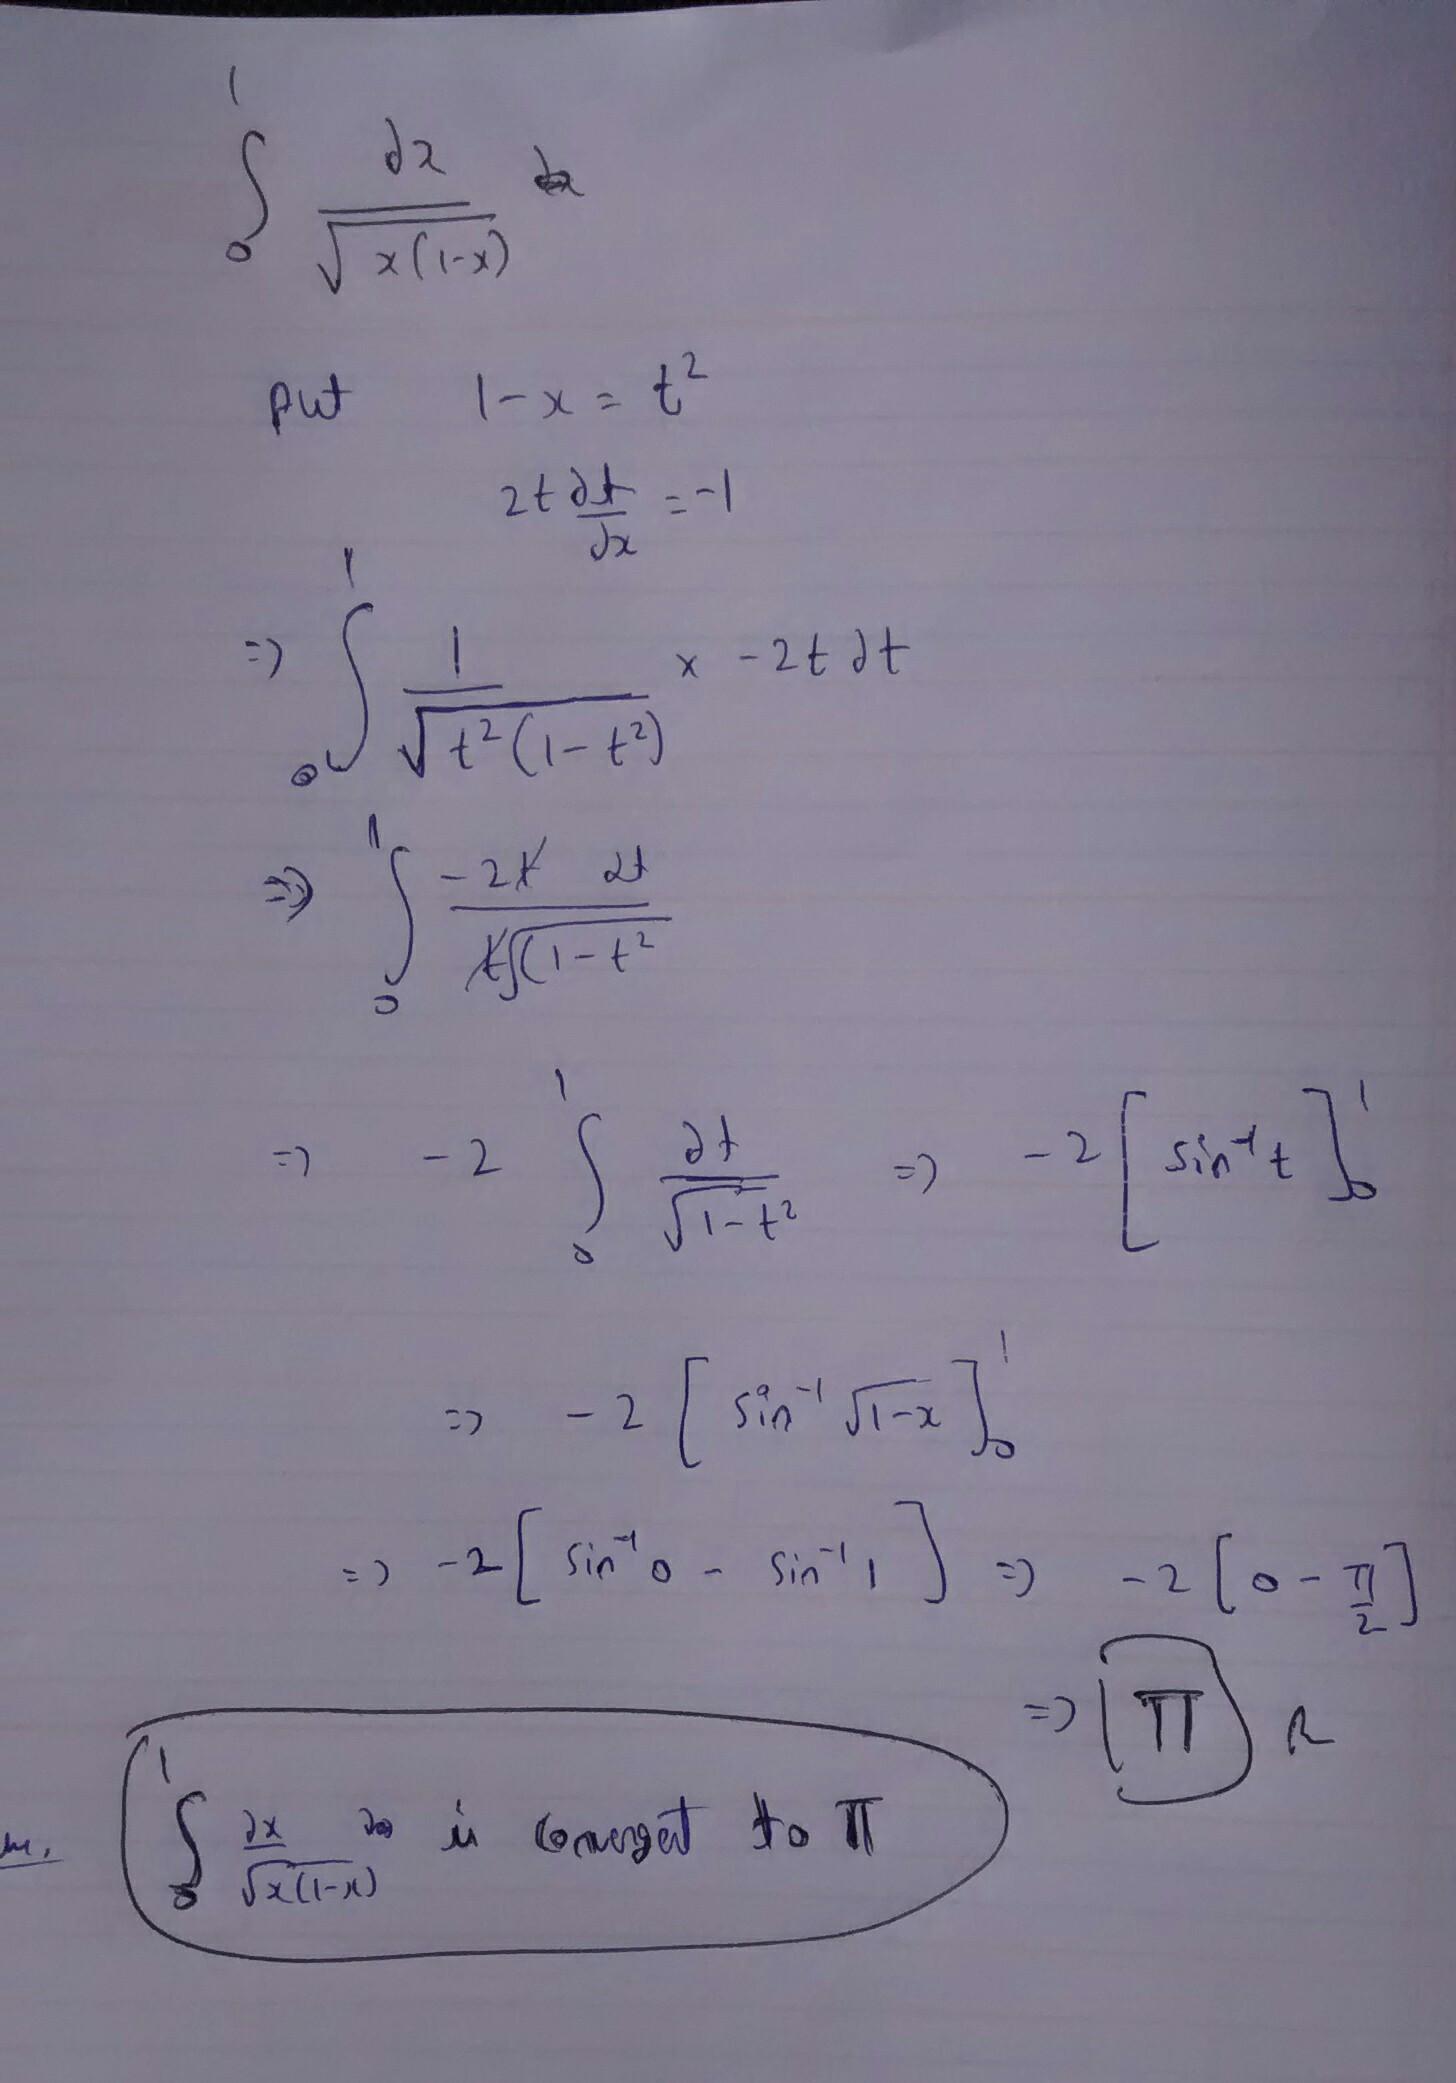 ∫₀¹ dx/√x(1-x)
put 1-x = t²
2t dt/dx = -1
=> ∫₀¹ 1/√t²(1-t²) x -2t dt
=> ∫₀¹ -2t dt/t√(1-t²
=> -2 ∫₀¹ dt/√1-t² => -2 [sin⁻¹t]₀¹
=> -2 [sin⁻¹ √1-x]₀¹
=> -2 [sin⁻¹0 - sin⁻¹1] => -2 [0 - π/2]
=> π
∫₀¹ dx/√x(1-x) is convergent to π